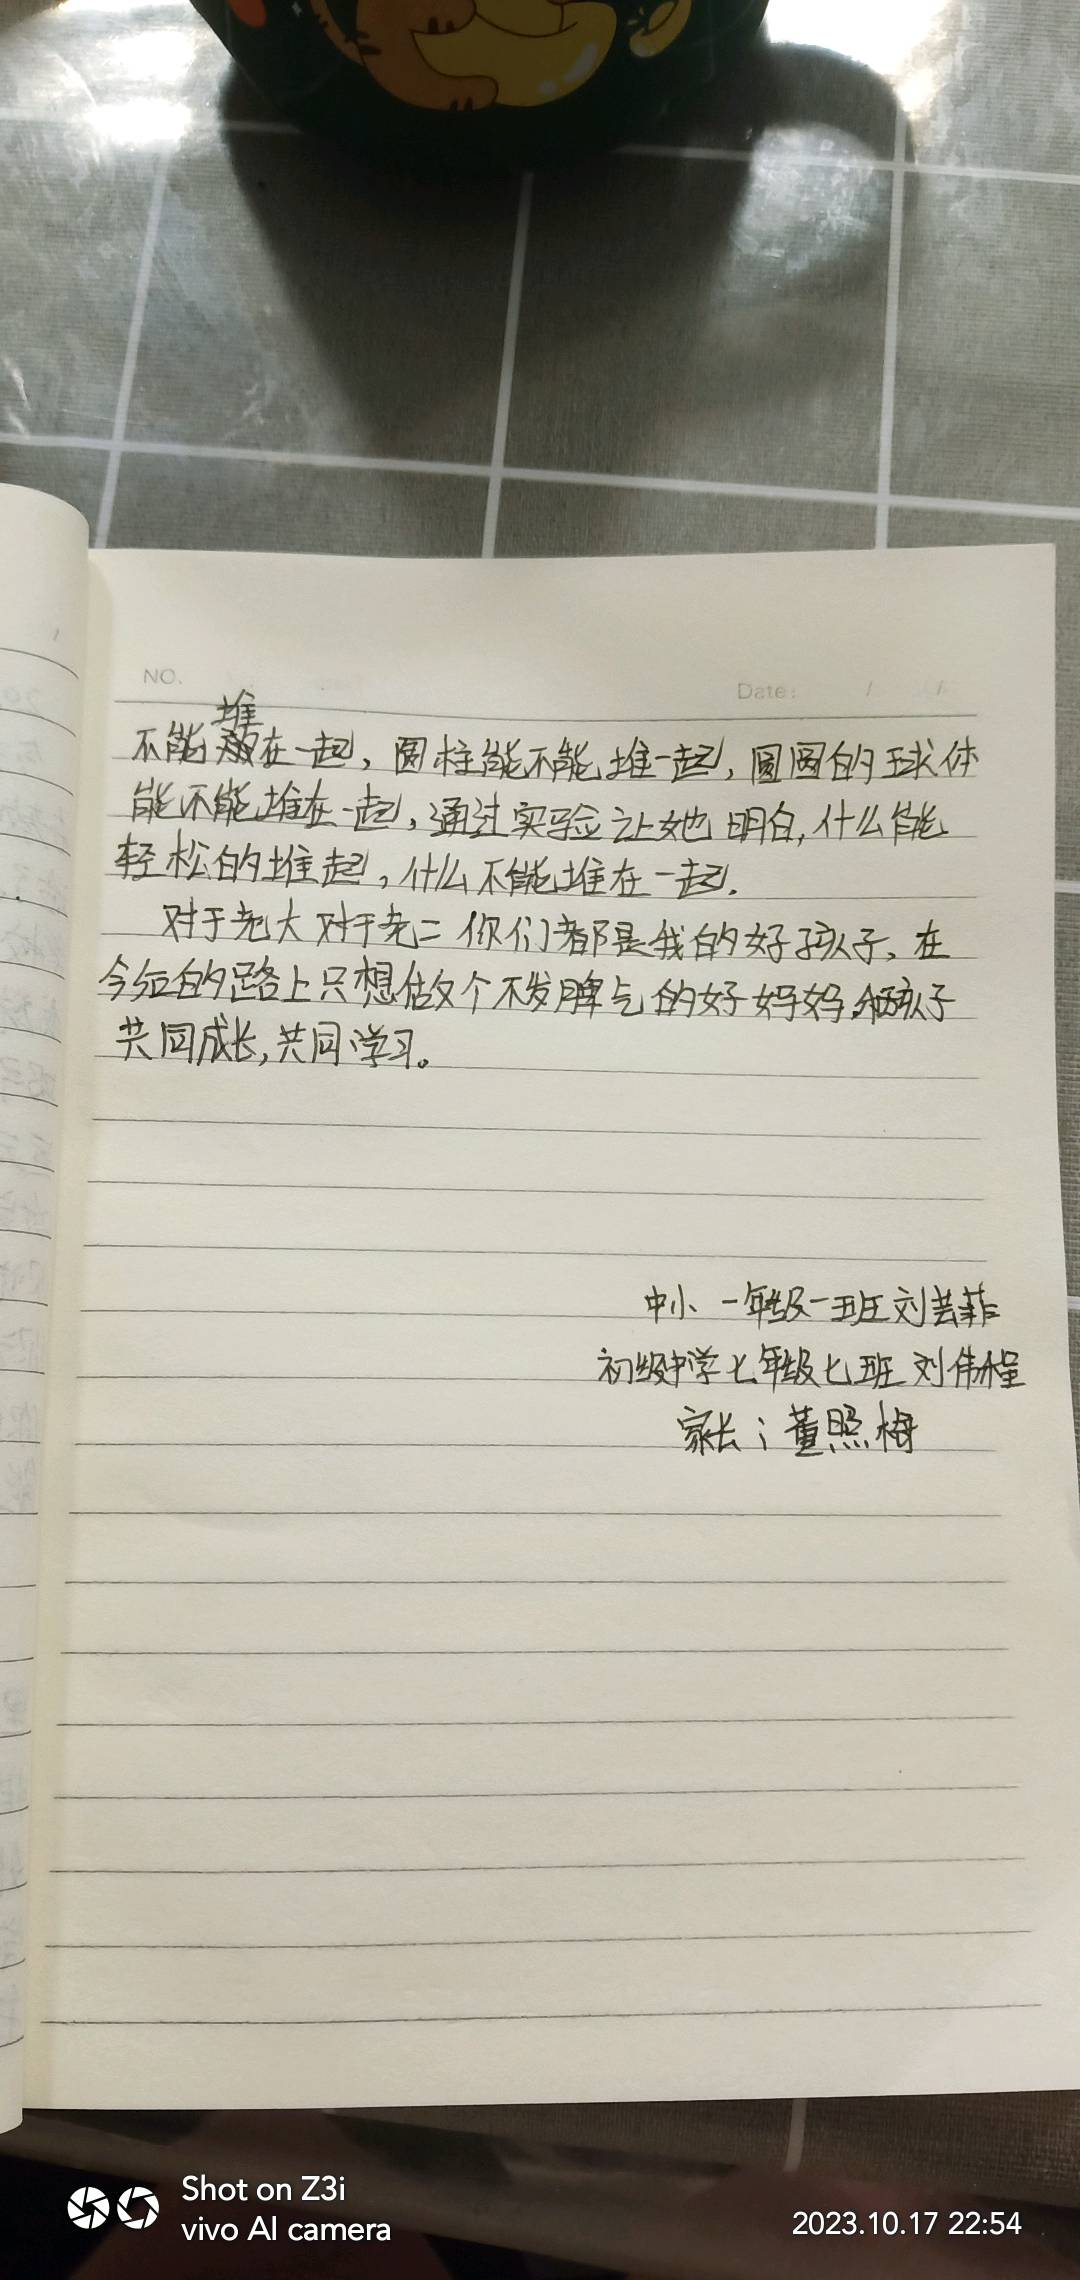 NO.
Date: / /
不能堆在一起，圆柱能不能堆一起，圆圆的球体
能不能堆在一起，通过实验让她明白，什么能
轻松的堆起，什么不能堆在一起.
对于老大对于老二你们都是我的好孩子，在
今后的路上只想做个不发脾气的好妈妈.和孩子
共同成长，共同学习。
中小 一年级一班刘芸菲
初级中学七年级七班 刘伟程
家长：董照梅
Shot on Z3i
vivo AI camera
2023.10.17 22:54